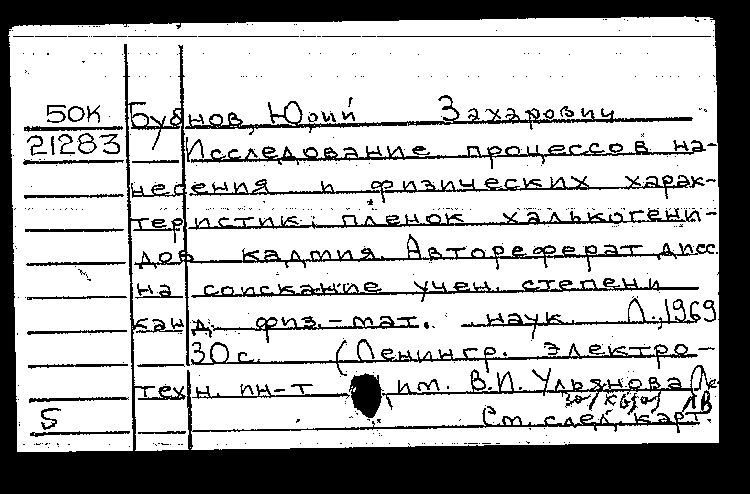 50К Бубнов, Юрий Захарович
21283 Исследование процессов на-
несения и физических харак-
теристик пленок халькогени-
дов кадмия. Автореферат дисс.
на соискание учен. степени
канд. физ.-мат. наук. Л., 1969
30 с. (Ленингр. электро-
техн. ин-т им. В.И. Ульянова (Ле
5 См. след. карт.